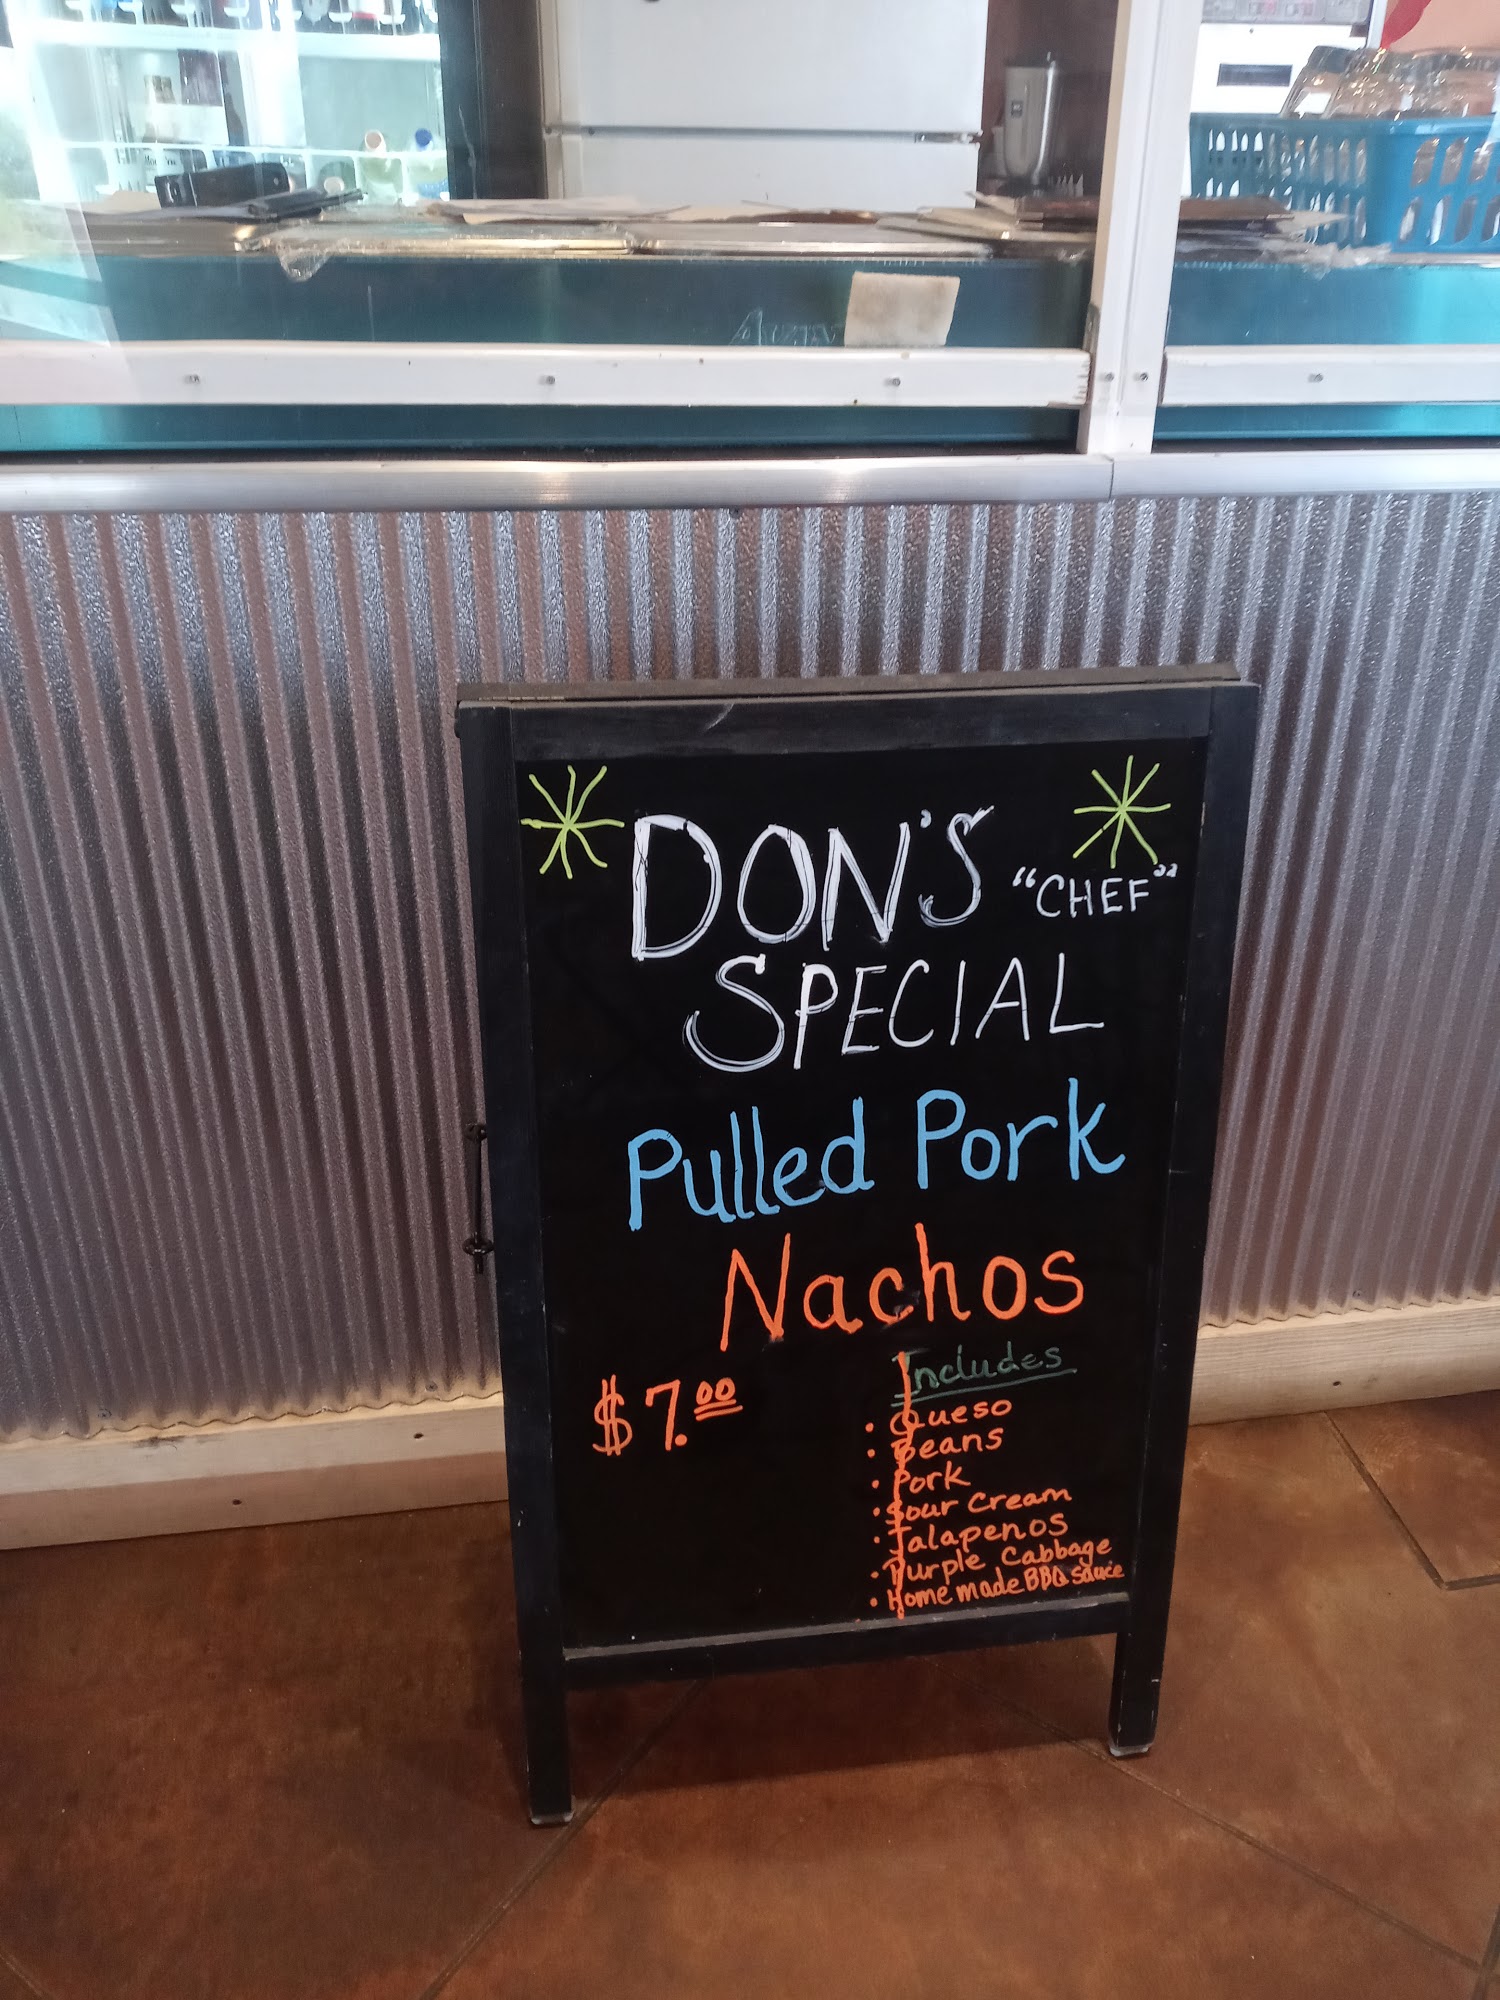 DON'S "CHEF"
SPECIAL
Pulled Pork
Nachos
$7.00
Includes
• Queso
• Beans
• Pork
• Sour Cream
• Jalapenos
• Purple Cabbage
• Homemade BBQ sauce